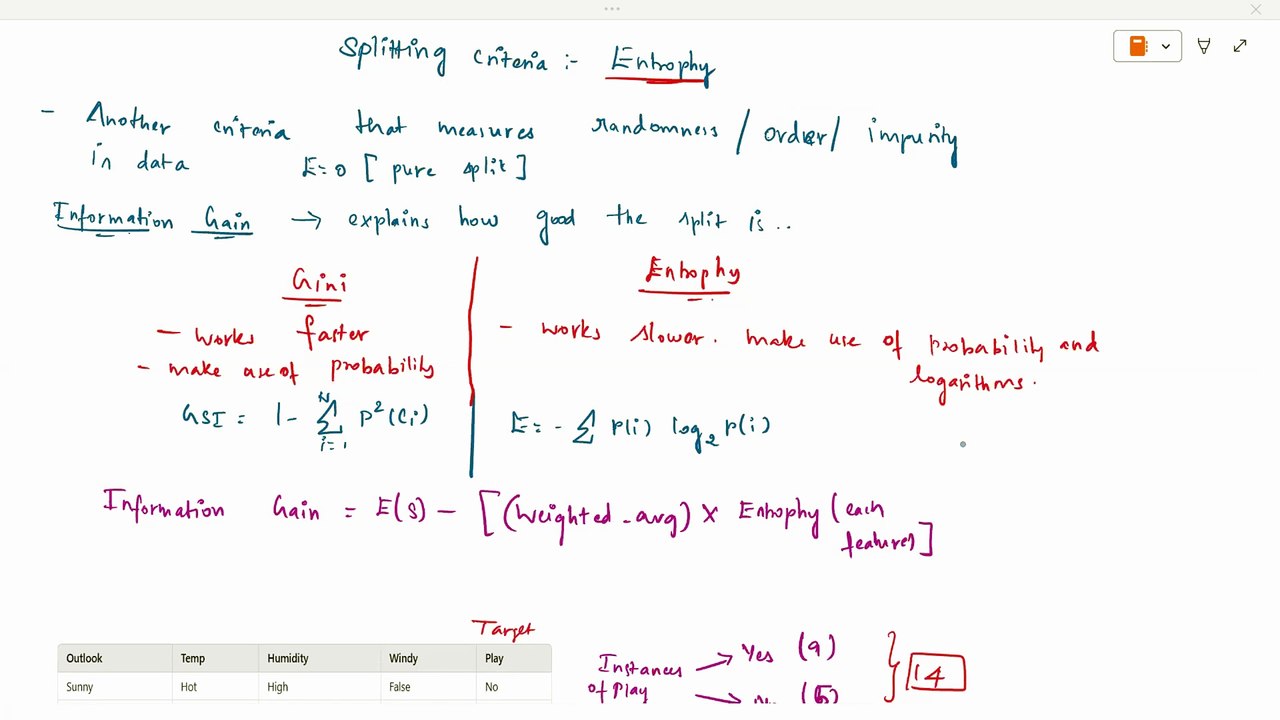 Splitting criteria :- Entrophy
- Another criteria that measures randomness / order / impurity
in data E=0 [ pure split ]
Information Gain → explains how good the split is ..
Gini
- works faster
- make use of probability
GSI = 1 - N Σ i=1 P²(Ci)
Entrophy
- works slower. make use of probability and
logarithms.
E = - Σ P(i) log₂ P(i)
Information Gain = E(S) - [(Weighted_avg) × Entrophy (each
features)]
Target
Outlook Temp Humidity Windy Play
Sunny Hot High False No
Instances
of Play
→ Yes (9)
→ No (5)
} 14